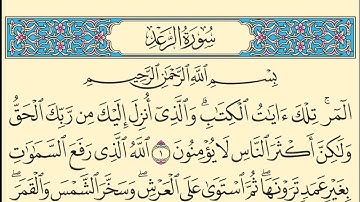 سُورَةُ الرَّعْدِ
بِسْمِ ٱللَّهِ ٱلرَّحْمَٰنِ ٱلرَّحِيمِ
الٓمٓر ۚ تِلْكَ ءَايَٰتُ ٱلْكِتَٰبِ ۗ وَٱلَّذِىٓ أُنزِلَ إِلَيْكَ مِن رَّبِّكَ ٱلْحَقُّ
وَلَٰكِنَّ أَكْثَرَ ٱلنَّاسِ لَا يُؤْمِنُونَ ١ ٱللَّهُ ٱلَّذِى رَفَعَ ٱلسَّمَٰوَٰتِ
بِغَيْرِ عَمَدٍ تَرَوْنَهَا ۖ ثُمَّ ٱسْتَوَىٰ عَلَى ٱلْعَرْشِ ۖ وَسَخَّرَ ٱلشَّمْسَ وَٱلْقَمَرَ ۖ